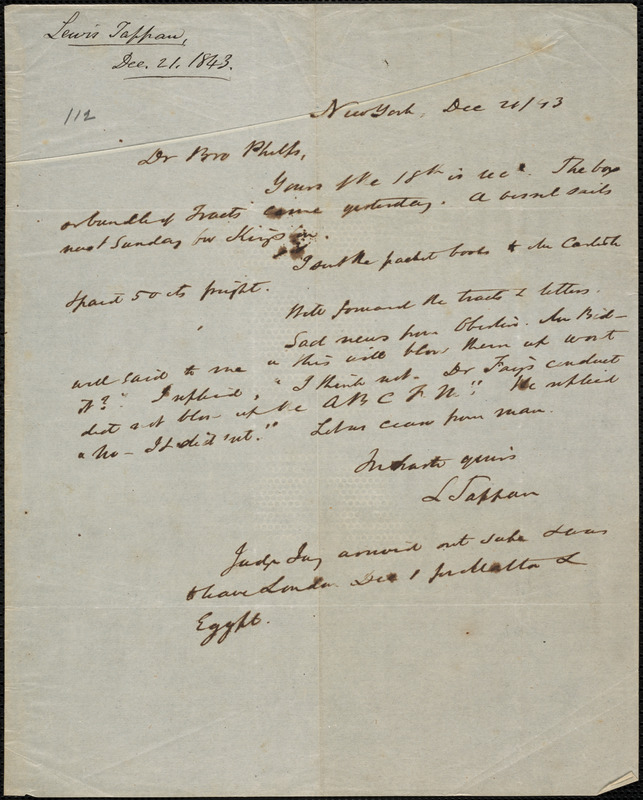 Lewis Tappan,
Dec. 21, 1843.
112
New York, Dec 21/43
Dr Bro Phelps,
Yours of the 18th is recd. The box
or bundle of Tracts came yesterday. A vessel sails
next Sunday for Kingston.
I sent the packet books & Mr Carlisle
& paid 50 cts freight.
Will forward the tracts & letters.
Sad news from Oberlin. Mr Bid-
well said to me "this will blow them up wont
it?" I replied, "I think not. Dr Fay's conduct
did not blow up the A B C F M." He replied
"No – It did n't." Let us cease from man.
In haste yours
L Tappan
Judge Jay arrived out safe & was
to leave London Dec 1 for Malta &
Egypt.